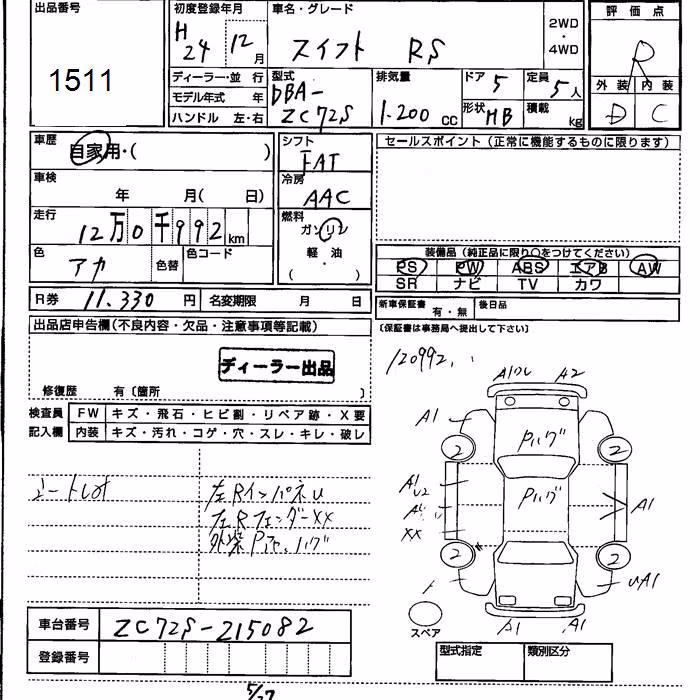 出品番号
1511
初度登録年月
H 24 12月
車名・グレード
スイフト RS
2WD
・
4WD
評価点
R
外装 内装
D C
ディーラー・並行
モデル年式 年
ハンドル 左・右
型式
DBA-
ZC72S
排気量
1.200 CC
ドア 5
形状 HB
定員 5人
積載 kg
車歴
自家用・( )
車検
年 月( 日)
走行
12万0千992km
色
アカ
色替
色コード
シフト
FAT
冷房
AAC
燃料
ガソリン
軽・油
( ・ )
セールスポイント(正常に機能するものに限ります)
装備品(純正品に限り○をつけてください)
PS PW ABS エアB AW
SR ナビ TV カワ
R券 11.330円
名変期限 月 日
新車保証書 有・無
後日品
(保証書は事務局へ提出して下さい)
出品店申告欄(不良内容・欠品・注意事項等記載)
ディーラー出品
修復歴 有〔箇所 〕
検査員
記入欄
FW キズ・飛石・ヒビ割・リペア跡・X要
内装 キズ・汚れ・コゲ・穴・スレ・キレ・破レ
120992
A2
A1
Pハゲ
2 2
A1
U2
Pハゲ
A1
XX
2 2
UA1
A1
スペア
左RインパネU
左RフェンダーXX
車台番号 ZC72S-215082
登録番号
型式指定 類別区分
5/27